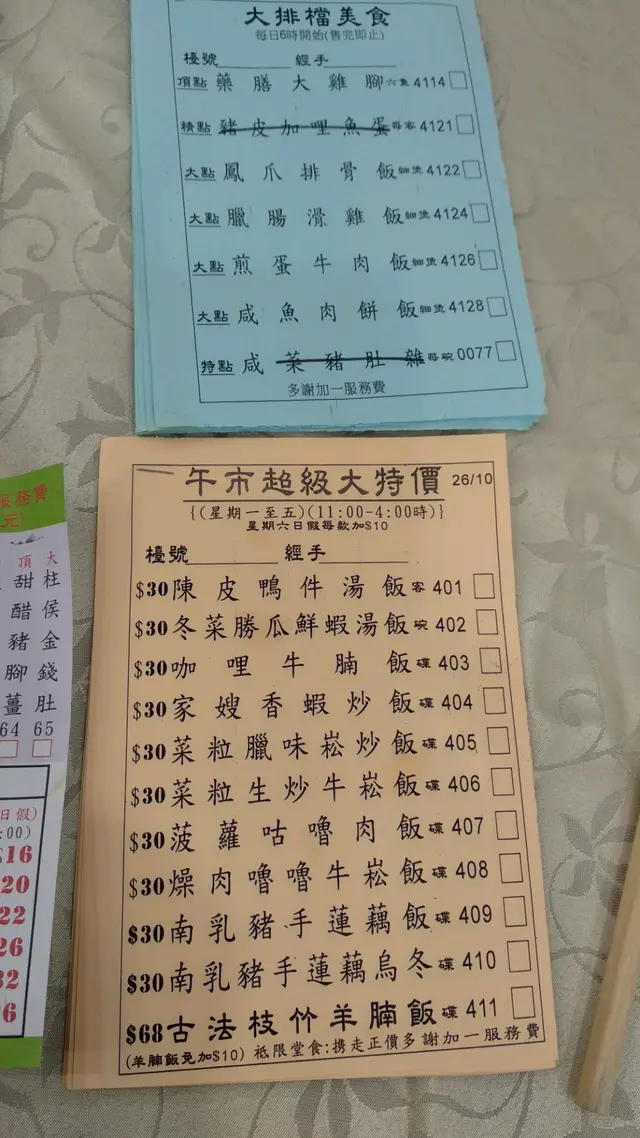 大排檔美食
每日6時開始(售完即止)
檯號 經手
頂點 藥膳大雞腳 六隻 4114
精點 豬皮加哩魚蛋 每客 4121
大點 鳳爪排骨飯 細煲 4122
大點 臘腸滑雞飯 細煲 4124
大點 煎蛋牛肉飯 細煲 4126
大點 咸魚肉餅飯 細煲 4128
特點 咸菜豬肚雜 每碗 0077
多謝加一服務費
午市超級大特價 26/10
{(星期一至五)(11:00-4:00時)}
星期六日假每款加$10
檯號 經手
$30 陳皮鴨件湯飯 客 401
$30 冬菜勝瓜鮮蝦湯飯 碗 402
$30 咖哩牛腩飯 碟 403
$30 家嫂香蝦炒飯 碟 404
$30 菜粒臘味崧炒飯 碟 405
$30 菜粒生炒牛崧飯 碟 406
$30 菠蘿咕嚕肉飯 碟 407
$30 燥肉嚕嚕牛崧飯 碟 408
$30 南乳豬手蓮藕飯 碟 409
$30 南乳豬手蓮藕烏冬 碟 410
$68 古法枝竹羊腩飯 碟 411
(羊腩飯免加$10) 祗限堂食:携走正價多謝加一服務費
服務費
元)
頂 大
甜 柱
醋 侯
豬 金
腳 錢
薑 肚
64 65
日假)
:00)
$16
20
22
26
32
6